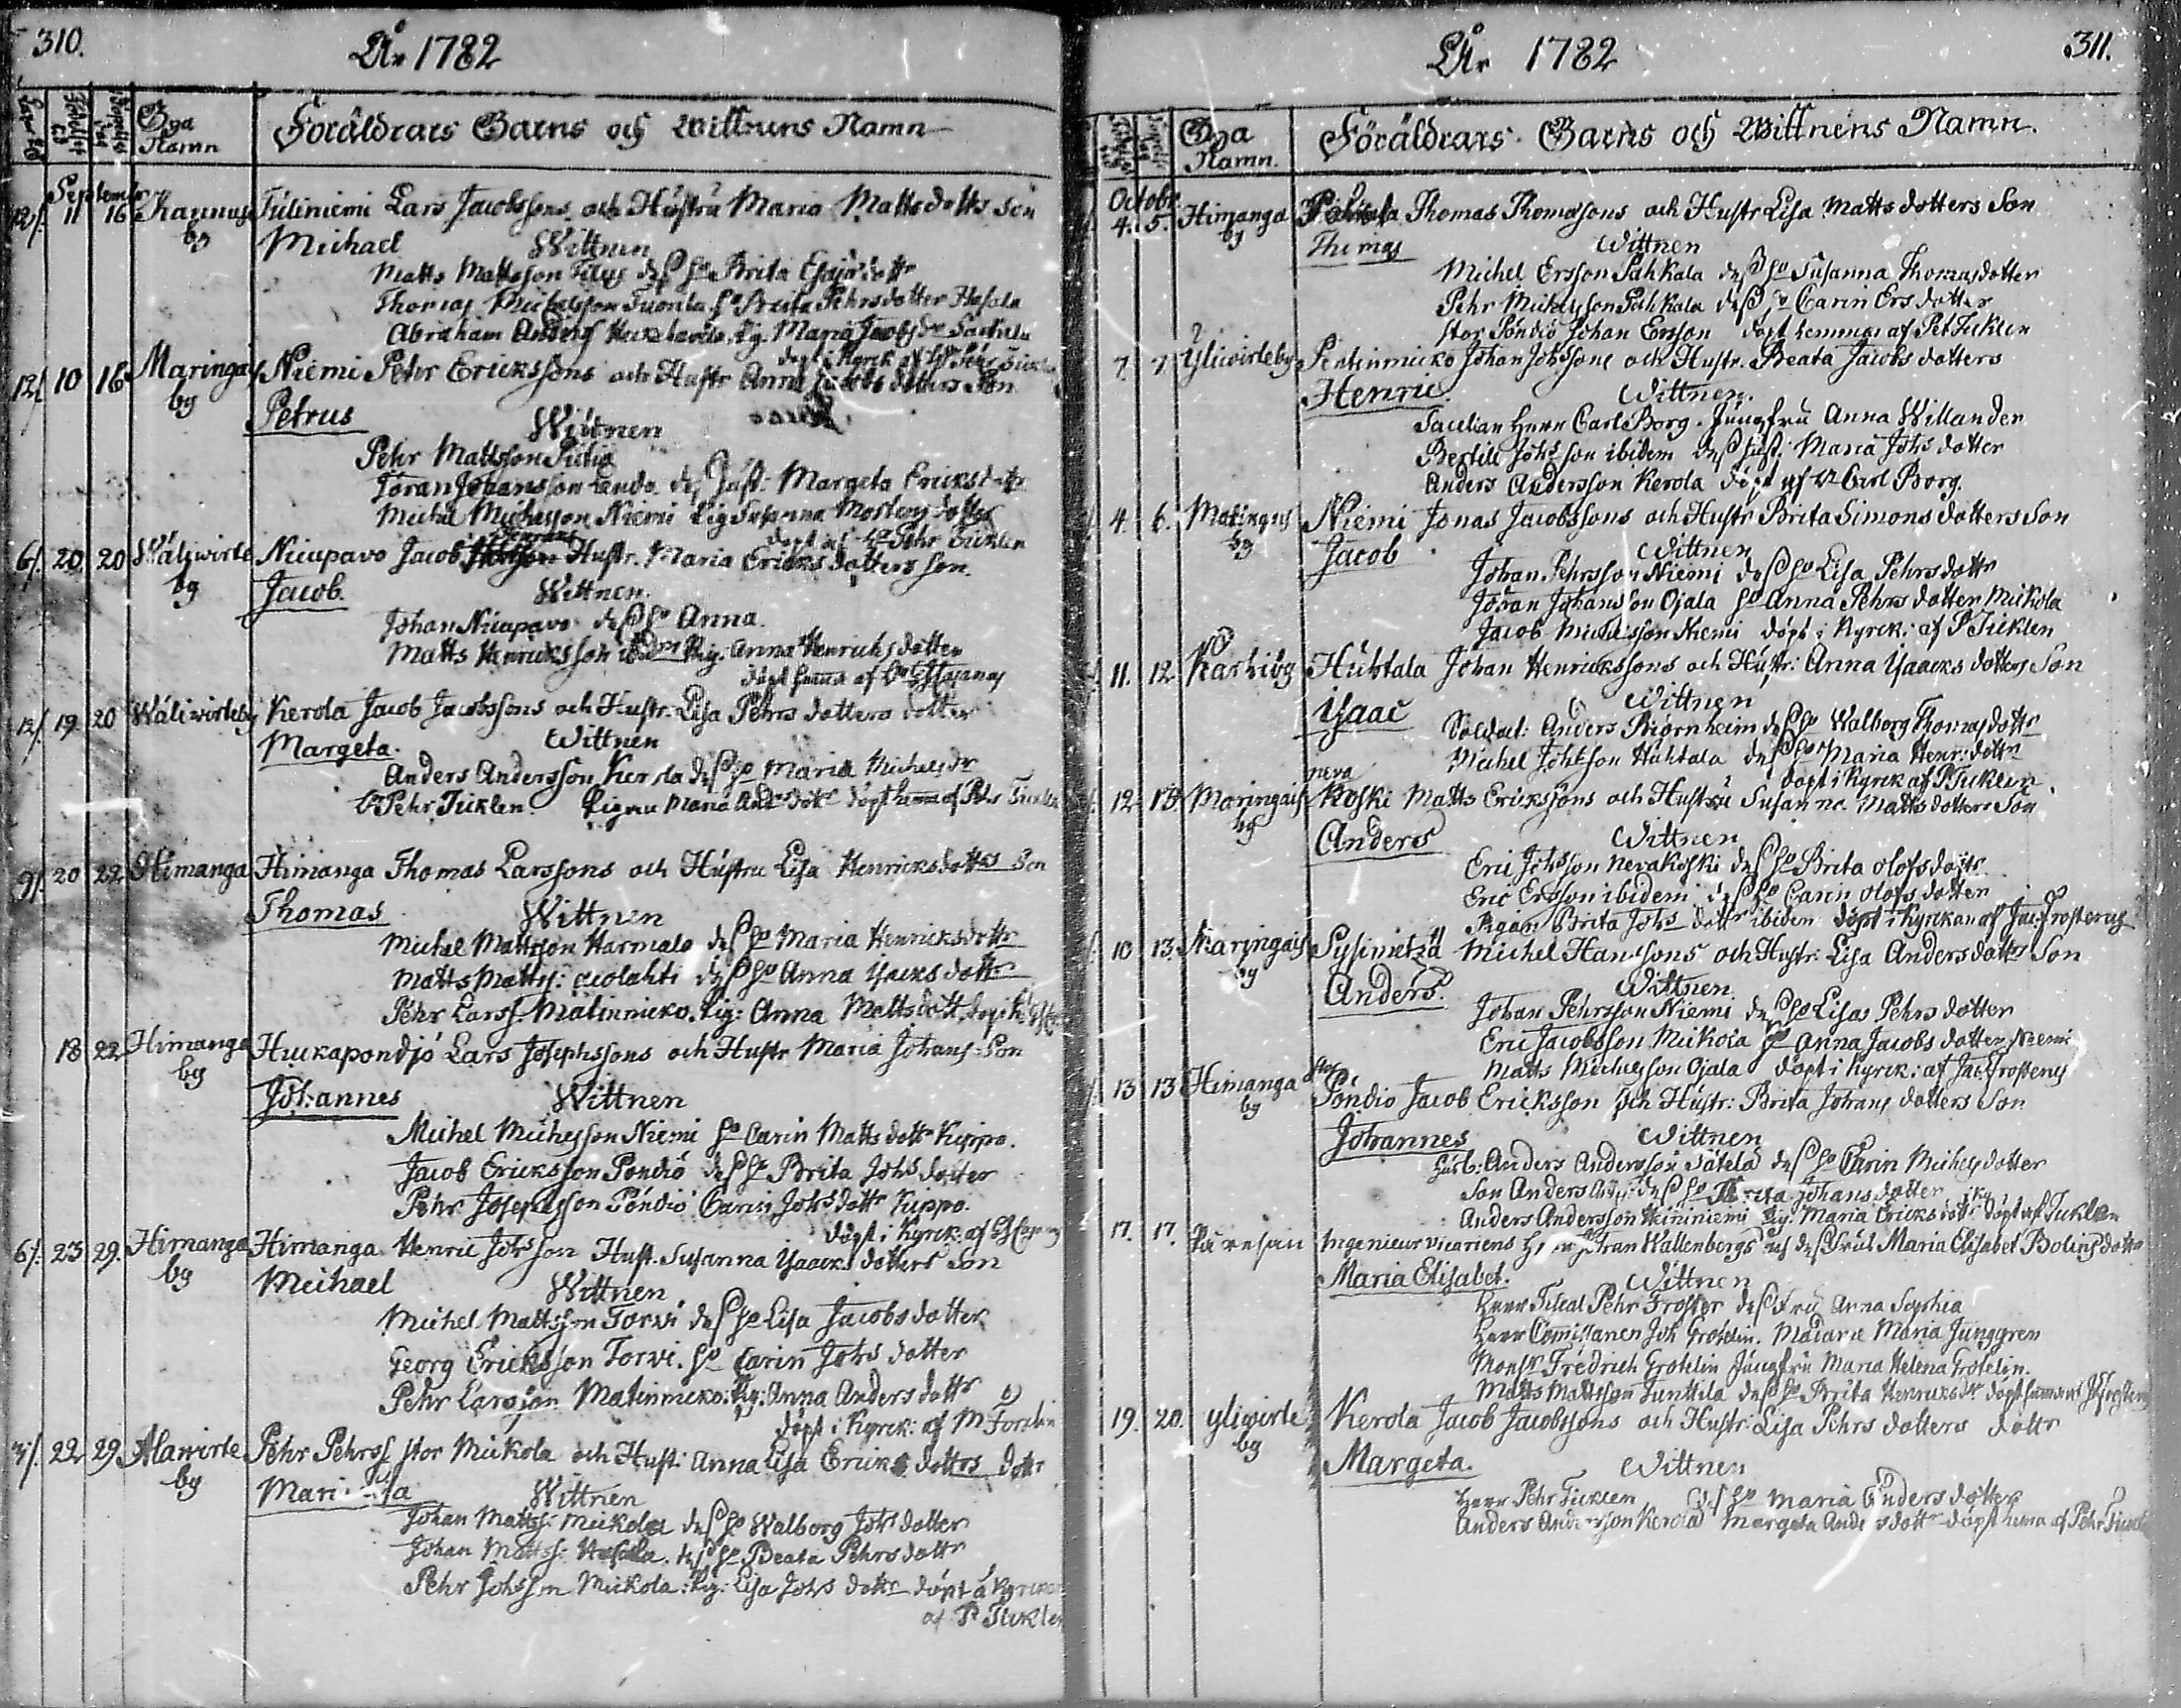 310.
År 1782
Bya Namn
Föräldrars Barns och Wittnens Namn
September
12/. 11 16 Kannus by
Lars Jacobssons och Hustru Maria Matts dotts son
Michael Wittnen
Matts Mattsson dess ho Brita
Thomas Michelsson ho Brita Pehrsdotter Hasala
Abraham Anders Pig. Maria Jacobs dr
döpt i Kyrck. af Pehr
12/. 10 16 Maringais by
Niemi Pehr Erickssons och Hustr Anna Jacobs dotters Son
Petrus Wittnen
Pehr Mattsson
Jöran Johansson dess Hust: Margeta Ericksdottr
Michel Michelsson Niemi Pig Susanna dotter
döpt af Pehr Ticklen
6/. 20 20 Wäliwirte by
Nicupavo Jacob Hustr. Maria Ericks dotters son.
Jacob. Wittnen.
Johan Nicupavo dess ho Anna.
Matts Henricksson Pig. Anna Henrichsdotter
döpt hema af
12/. 19 20 Wäliwirteby
Kerola Jacob Jacobssons och Hustr. Lisa Pehrs dotters dotter
Margeta. Wittnen
Anders Andersson Kerola dess ho Maria Michels dr
Pehr Ticklen. Pigan Maria And: dotr döpt hema af Pehr Ticklen
9/. 20 22 Himanga
Himanga Thomas Larssons och Hustru Lisa Henricksdotters Son
Thomas Wittnen
Michel Mattsson Harmala dess ho Maria Henricksdottr
Matts Mattss: dess ho Anna Isacksdottr
Pehr Larss. Matinmicko. Pig: Anna Mattsdott.
18 22 Himanga by
Huckapondjö Lars Josephssons och Hustr Maria Johans Son
Johannes Wittnen
Michel Michelsson Niemi ho Carin Matts dottr Kippo.
Jacob Ericksson Pöndiö dess ho Brita Johs dotter
Pehr Josephsson Pöndiö Carin Johs dottr Kippo.
döpt i Kyrck: af
6/. 23 29. Himanga by
Himanga Henric Johsson Hust. Susanna Isaacks dotters Son
Michael Wittnen
Michel Mattsson Torvi dess ho Lisa Jacobsdotter
Georg Ericksson Torvi. ho Carin Johs dotter
Pehr Larsson Matinmicko. Pig: Anna Anders dottr
döpt i Kyrck: af M Forslin
3/. 22 29 Alawirte by
Pehr Pehrss stor Mickola och Hust: Anna Lisa Ericks dotters dottr
Wittnen
Johan Mattss: Mickola dess ho Walborg Johs dotter
Johan Mattss: Hasala. dess ho Beata Pehrs dottr
Pehr Johsson Mickola: Pig: Lisa Johs dottr döpt å Kyrckan
af P Ticklen
311.
År 1782
Bya Namn.
Föräldrars Barns och Wittnens Namn.
October
4. 5. Himanga by
Thomas Thomassons och Hustr Lisa Matts dotters Son
Thomas Wittnen
Michel Ersson Pahkala dess ho Susanna Thomasdotter
Pehr Michelsson Pahkala dess ho Carin Ersdotter
stor Pöndiö Johan Ersson döpt hemma af Pet Ticklen
7. 7 Yliwirteby
Pentinmicko Johan Johssons och Hustr. Beata Jacobs dotters
Henric. Wittnen.
Herr Carl Borg. Jungfru Anna Willander
Bertill Johsson ibidem dess hust. Maria Johs dotter
Anders Andersson Kerola döpt af Carl Borg.
4. 6. Maringais by
Niemi Jonas Jacobssons och Hustr Brita Simons dotters Son
Jacob Wittnen
Johan Pehrsson Niemi dess ho Lisa Pehrsdottr
Johan Johansson Ojala ho Anna Pehrs dotter Mickola
Jacob Michelsson Niemi döpt i Kyrck: af P Ticklen
11. 12. Karhiby
Huhtala Johan Henrickssons och Hustr: Anna Isaacks dotters Son
Isaac Wittnen
Soldat: Anders Biörnheim dess ho Walborg Thomasdottr
Michel Johsson Huhtala dess ho Maria Henr: dottr
döpt i Kyrck af P Ticklen.
12 13 Maringais by
neva Koski Matts Erickssons och Hustru Susanna Matts dotters Son
Anders Wittnen
Eric Johsson Nevakoski dess ho Brita Olofsdottr
Eric Ersson ibidem dess ho Carin Olofs dotter
Pigan Brita Johs dottr ibidem döpt i Kyrckan af Jac. Frosterus
10 13. Maringais by
Michel Hanssons och Hustr: Lisa Anders dotters Son
Anders. Wittnen.
Johan Pehrsson Niemi dess ho Lisa Pehrs dotter
Eric Jacobsson Mickola ho Anna Jacobs dotter Niemi
Matts Michelsson Ojala döpt i Kyrck: af Jac. Frosterus
13 13 Himanga by
stor Pöndiö Jacob Ericksson och Hustr: Brita Johans dotters Son
Johannes Wittnen
Husb: Anders Andersson Sätela dess ho Carin Michels dotter
Son Anders Anders: dess ho Brita Johans dotter
Anders Andersson Heininiemi Pig: Maria Ericks dotr döpt af Ticklen
17. 17.
Ingenieur vicariens Herr Johan Wallenbergs och dess Frus Maria Elisabet Bolins dotter
Maria Elisabet. Wittnen
Herr Fiscal Pehr Froster dess Fru Anna Sophia
Herr Comissarien Joh Grotelin. Madame Maria Junggren
Monsr Fredrich Grotelin Jungfru Maria Helena Grotelin.
Matts Mattsson Junttila dess ho Brita Henricks dr döpt hemma af J Frosterus
19. 20. Yliwirte by
Kerola Jacob Jacobssons och Hustr: Lisa Pehrs dotters dottr
Margeta. Wittnen
Herr Pehr Ticklen dess ho Maria Anders dotter
Anders Andersson Kerola Margeta Anders dottr döpt hema af Pehr Ticklen